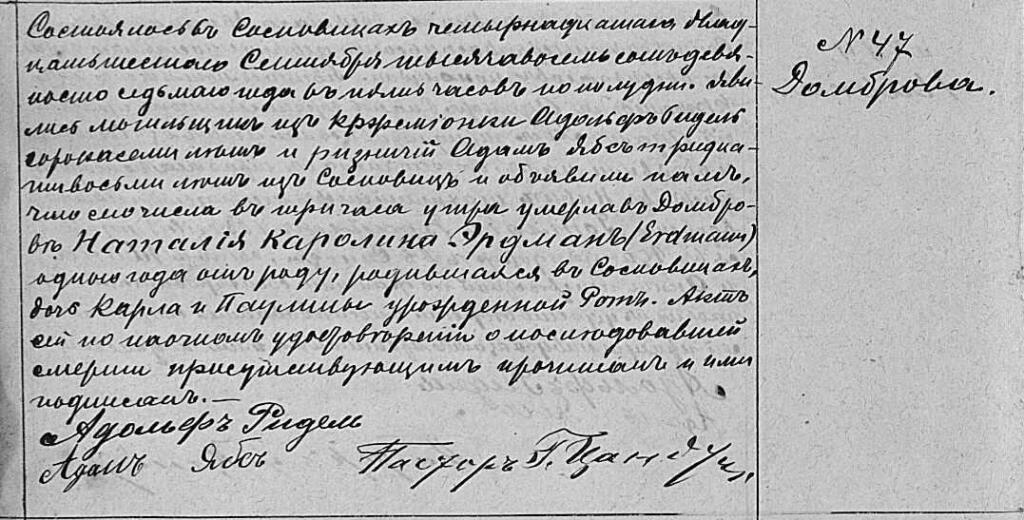 Состоялось въ Сосновицахъ четырнадцатаго двад-
цать шестого Сентября тысяча восемь сотъ девя-
носто седьмаго года въ пять часовъ по полудни. Яви-
лись могильщикъ изъ Адольфъ Ридель
сорока семи лѣтъ и ризничій Адамъ Ябсъ тридца-
ти восьми лѣтъ изъ Сосновицъ и объявили намъ,
что сего числа въ три часа утра умерла въ Домбро-
вѣ Наталія Каролина Эрдманъ (Erdmann)
одного года отъ роду, родившаяся въ Сосновицахъ,
дочь Карла и Паулины урожденной Ротъ. Актъ
сей по наочномъ удостовѣреніи о послѣдовавшей
смерти присутствующимъ прочитанъ и ими
подписанъ. —
Адольфъ Ридель
Адамъ Ябсъ Пасторъ Г.
N 47
Домброва.